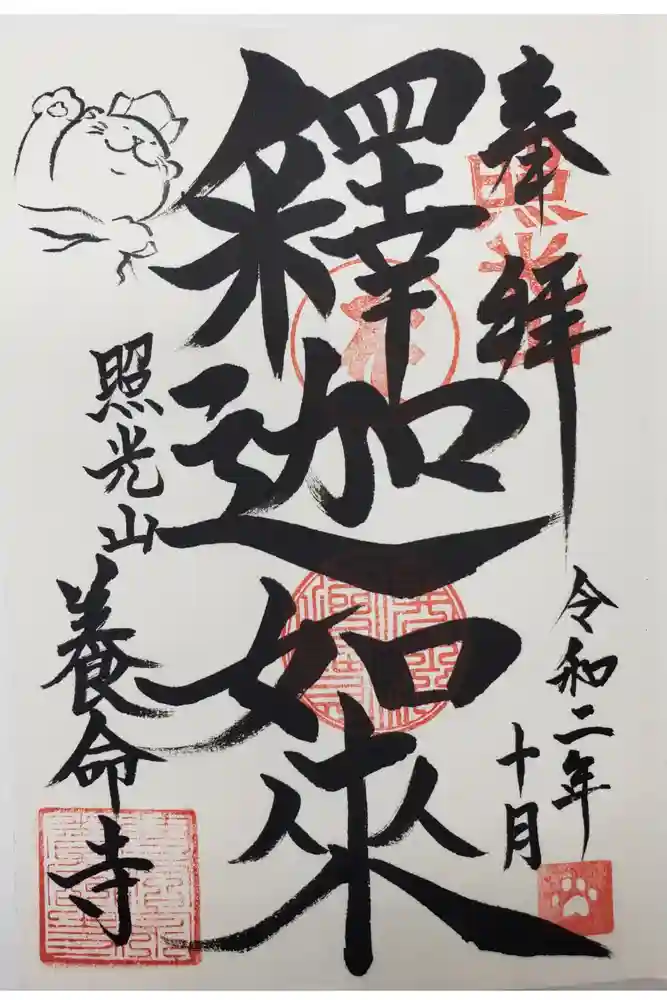 奉拝
照光山
令和二年
十月
釋迦如來
照光山
養命寺